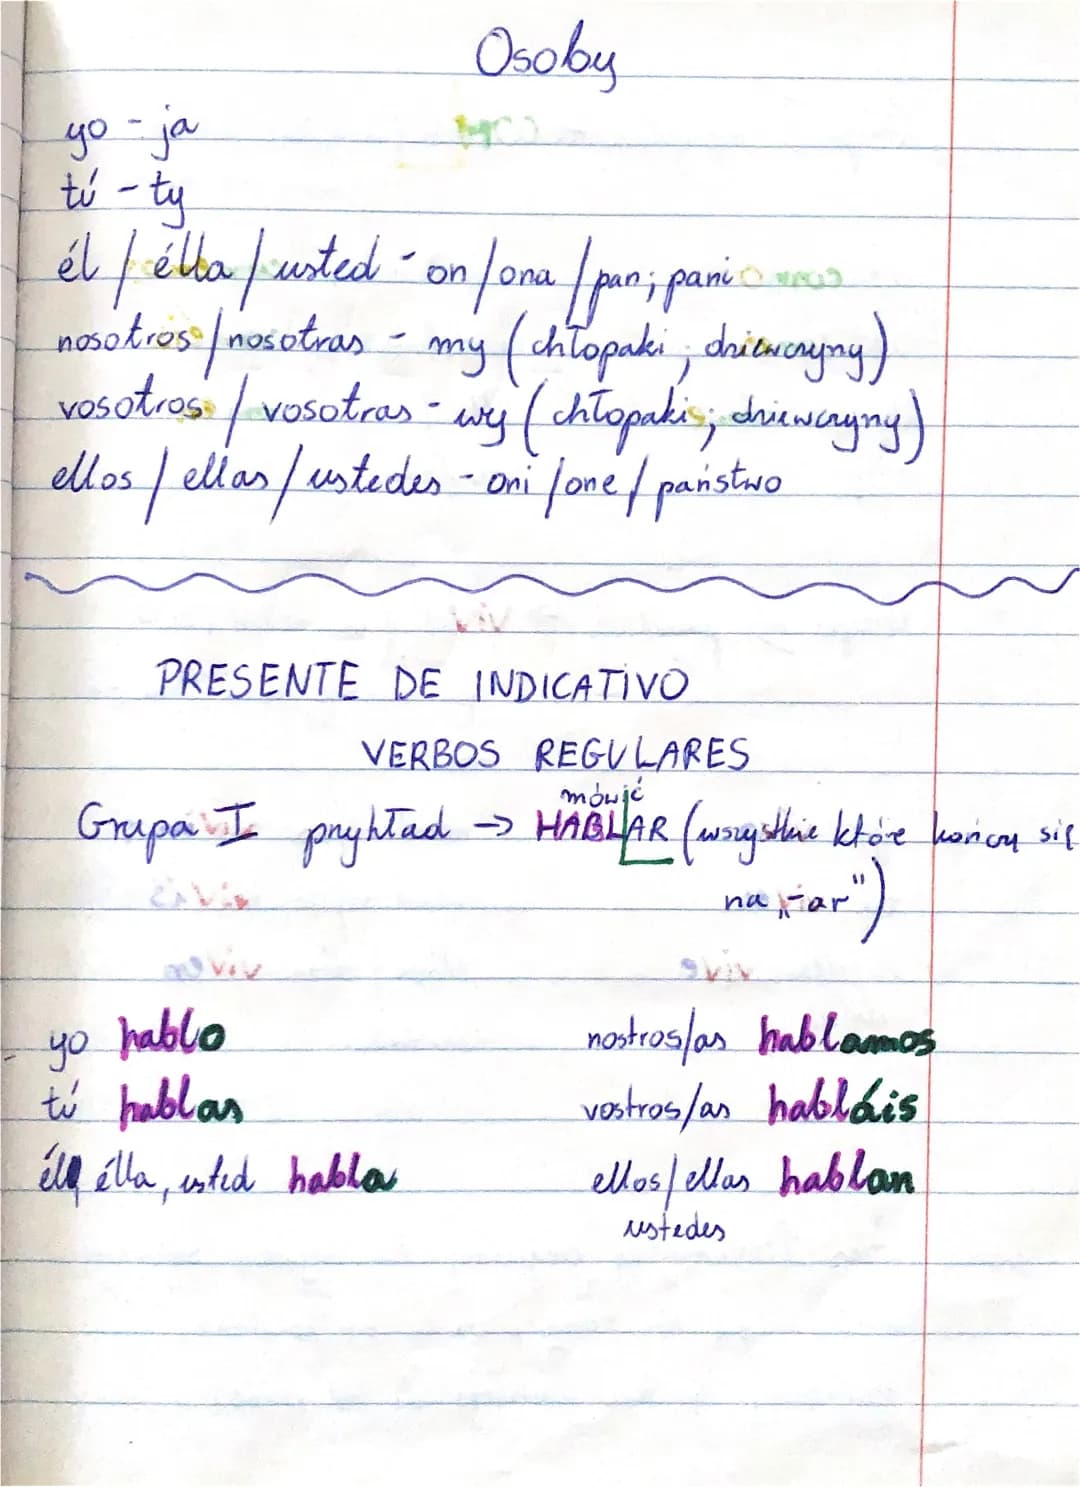 Osoby
yo - ja
tú - ty
él / élla / usted - on / ona / pan; pani
nosotros / nosotras - my (chłopaki; dziewczyny)
vosotros / vosotras - wy (chłopaki; dziewczyny)
ellos / ellas / ustedes - oni / one / państwo
PRESENTE DE INDICATIVO
VERBOS REGULARES
mówić
Grupa I przykład → HABLAR (wszystkie które kończą się
na „-ar")
yo hablo
tú hablas
él, élla, usted habla
nostros/as hablamos
vostros/as habláis
ellos/ellas hablan
ustedes